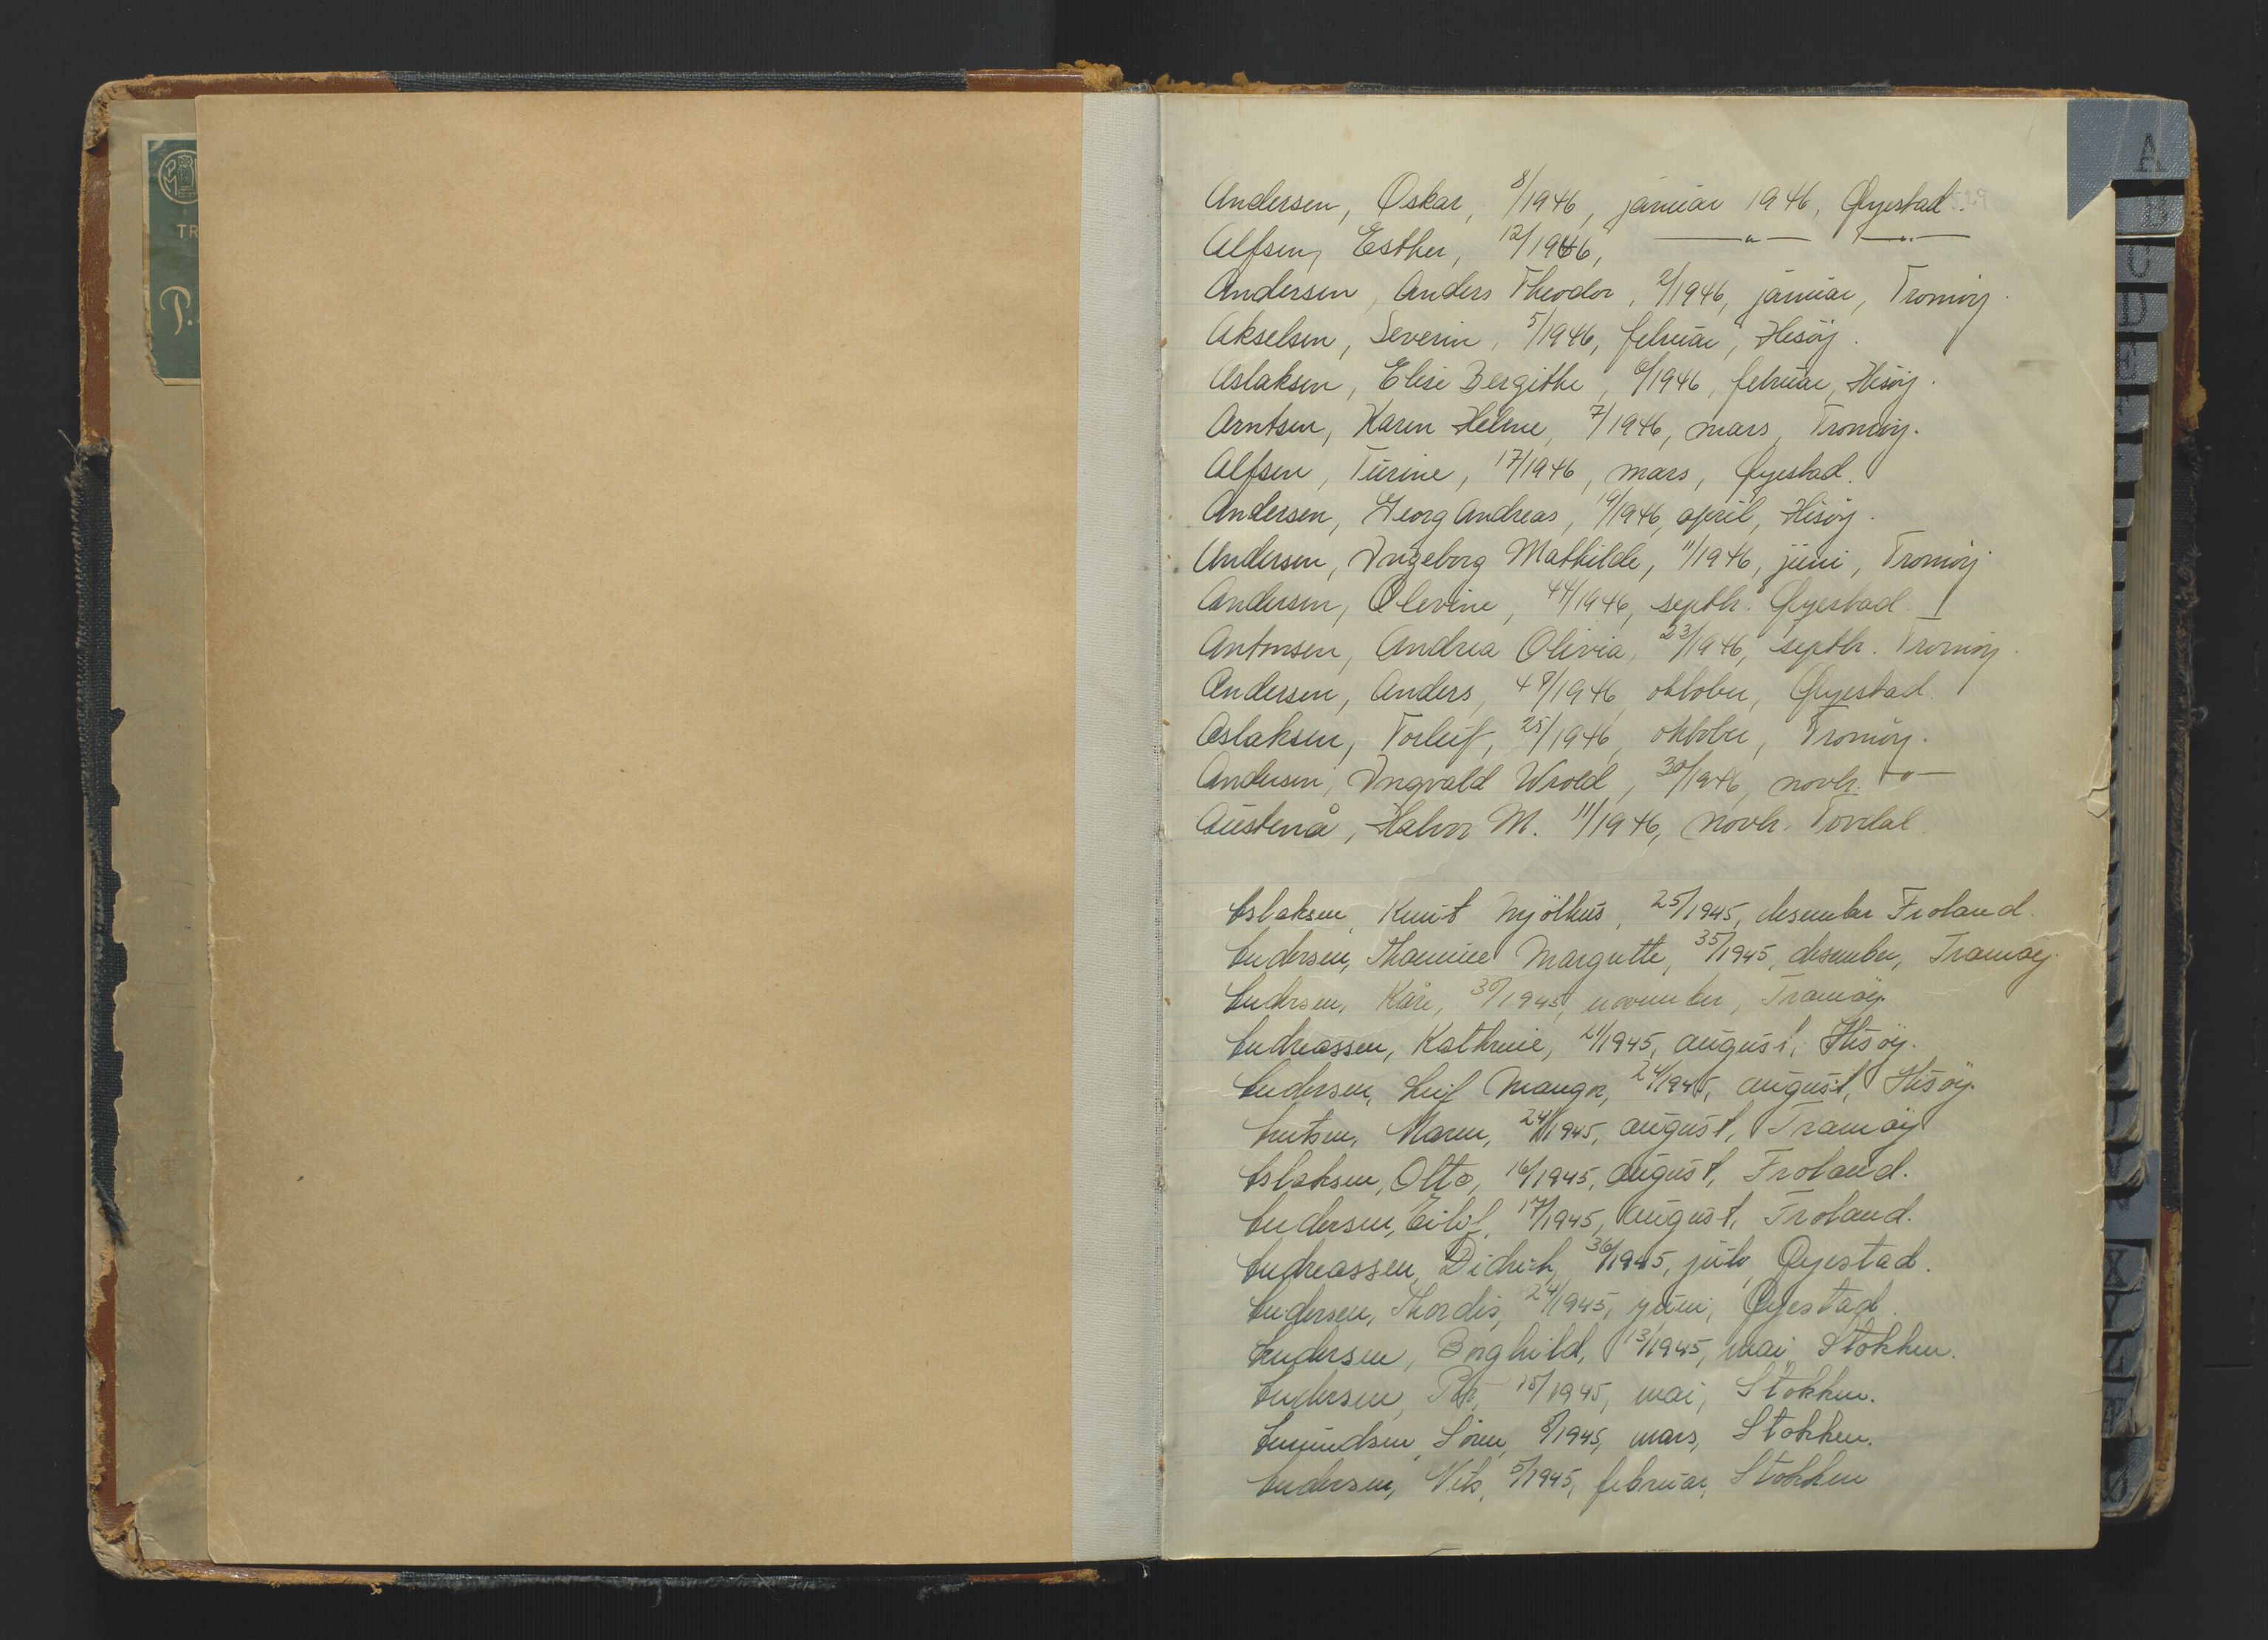 TR
P.
A
B
C
D
E
F
Andersen, Oskar, 8/1946, januar 1946, Øyestad.
Alfsen, Esther, 12/1946, —"— —"—
Andersen, Anders Theodor, 2/1946, januar, Tromöy.
Akselsen, Severin, 5/1946, februar, Hisöy.
Aslaksen, Elise Bergithe, 6/1946, februar, Hisöy.
Arntsen, Karen Helene, 7/1946, mars, Tromöy.
Alfsen, Turine, 17/1946, mars, Øyestad.
Andersen, Georg Andreas, 14/1946, april, Hisöy.
Andersen, Ingeborg Mathilde, 11/1946, juni, Tromöy
Andersen, Olevine, 44/1946, septbr. Øyestad.
Antonsen, Andrea Olivia, 23/1946, septbr. Tromöy.
Andersen, Anders, 48/1946, oktober, Øyestad.
Aslaksen, Torleif, 25/1946, oktober, Tromöy.
Andersen, Ingvald Wrold, 30/1946, novbr. —"—
Austenå, Halvor M. 11/1946, novbr. Tovdal.
Aslaksen, Knut Mjölhus, 25/1945, desember Froland.
Andersen, Thomine Margrette, 35/1945, desember, Tromöy.
Andersen, Kåre, 30/1945, november, Tromöy.
Andreassen, Kathrine, 21/1945, august, Hisöy.
Andersen, Leif Mangor, 24/1945, august, Hisöy.
Arntsen, Maren, 24/1945, august, Tromöy
Aslaksen, Otto, 16/1945, august, Froland.
Andersen, Eilif, 17/1945, august, Froland.
Andreassen, Didrik, 36/1945, juli, Øyestad.
Andersen, Thordis, 24/1945, juni, Øyestad.
Andersen, Borghild, 13/1945, mai, Stokken.
Andersen, 15/1945, mai, Stokken.
Amundsen, Sören, 8/1945, mars, Stokken.
Andersen, Nils, 5/1945, februar, Stokken
X
Y
Z
Æ
Ø